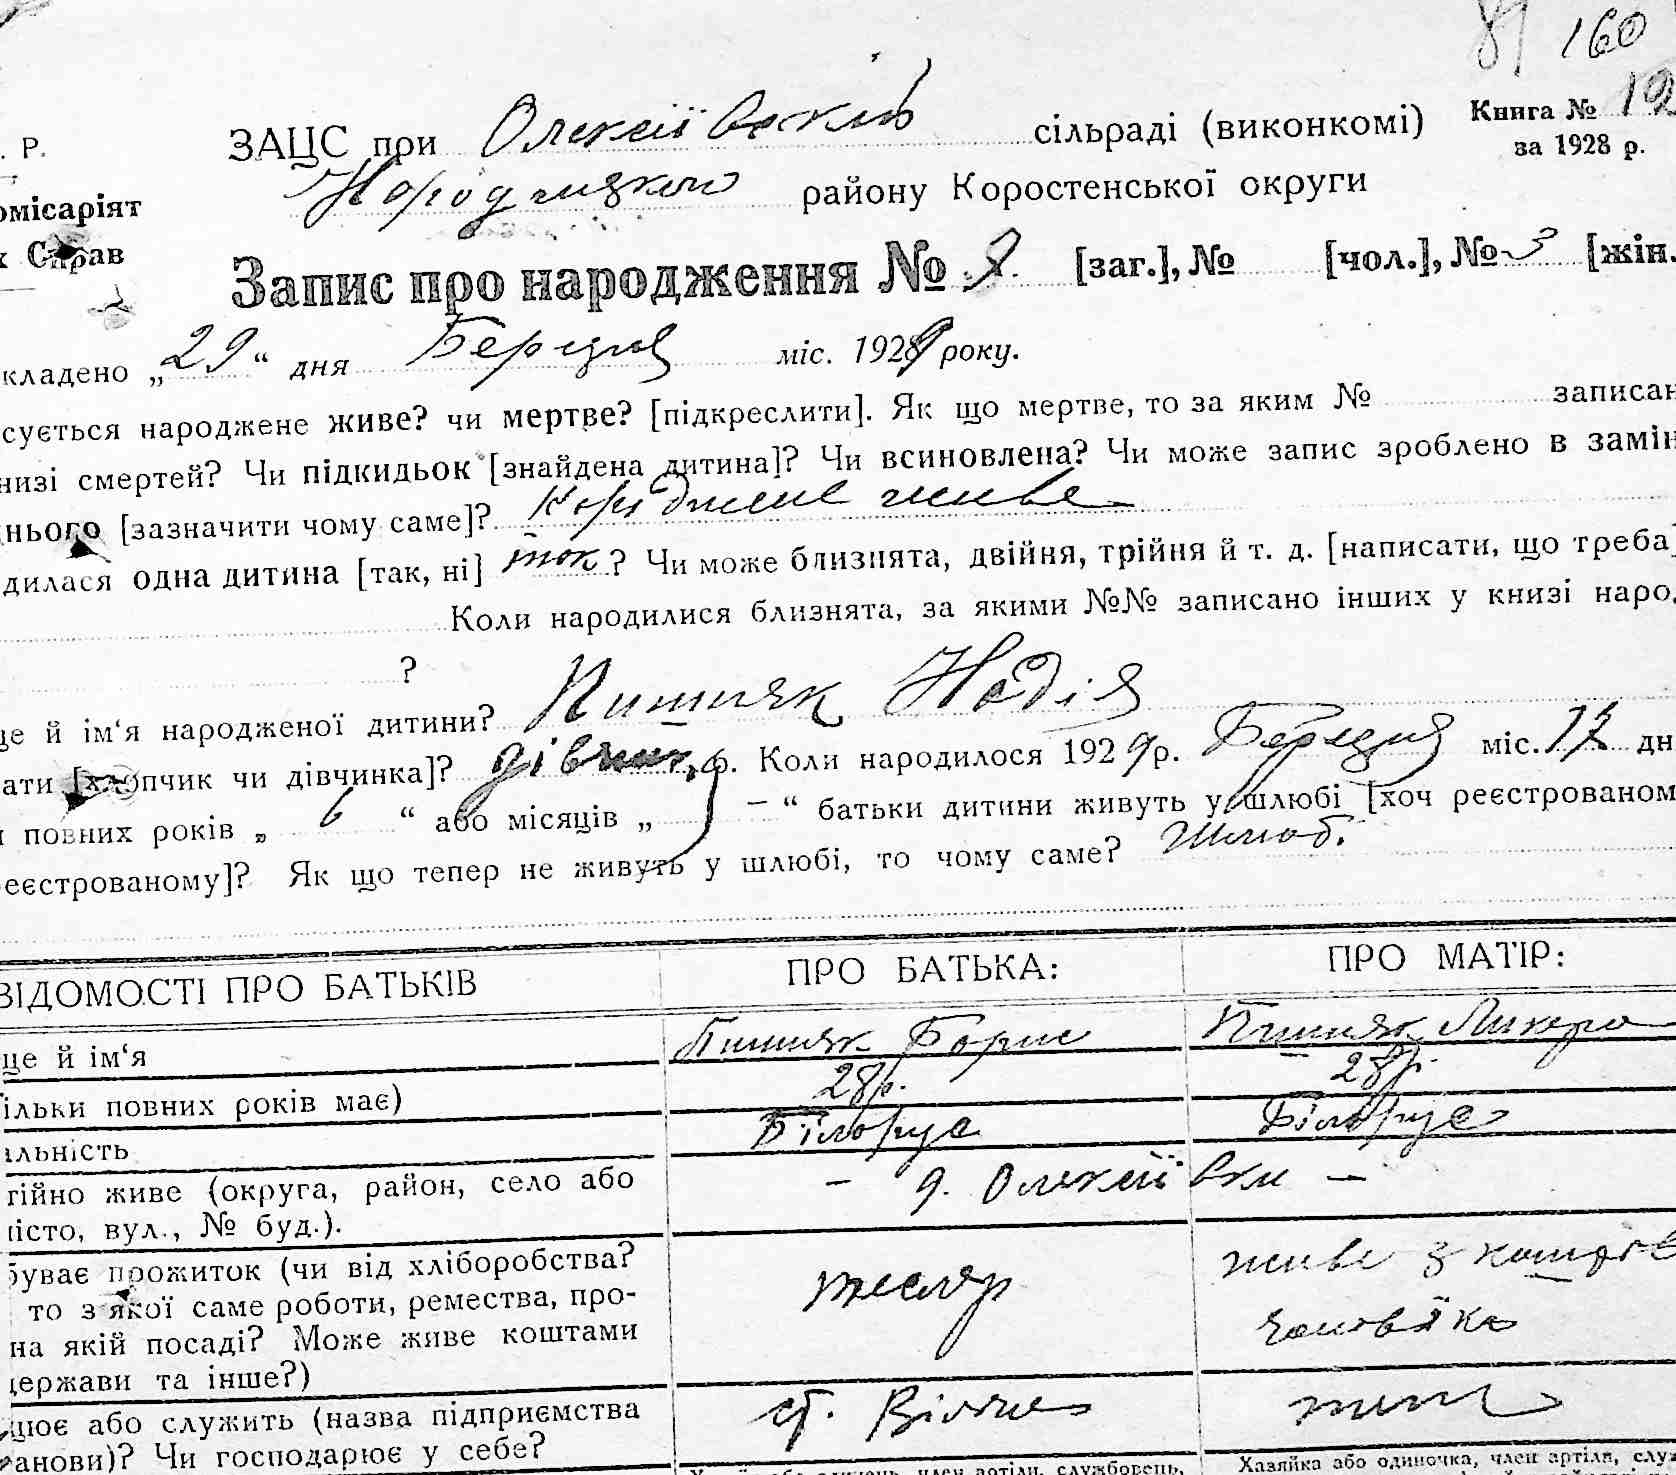 160
. Р.
ЗАЦС при Олексіївськів сільраді (виконкомі)
Книга №
за 1928 р.
омісаріят
Народицького району Коростенської округи
х Справ
Запис про народження № [заг.], № [чол.], № 3 [жін.
кладено „29“ дня Березня міс. 1929 року.
сується народжене живе? чи мертве? [підкреслити]. Як що мертве, то за яким № записан
низі смертей? Чи підкидьок [знайдена дитина]? Чи всиновлена? Чи може запис зроблено в замін
нього [зазначити чому саме]? живе
дилася одна дитина [так, ні] так? Чи може близнята, двійня, трійня й т. д. [написати, що треба]
Коли народилися близнята, за якими №№ записано інших у книзі народ.
?
ще й ім‘я народженої дитини? Пишняк Надія
ати [хлопчик чи дівчинка]? Коли народилося 1929 р. Березня міс. 17 дн
и повних років „ 6 “ або місяців „ – “ батьки дитини живуть у шлюбі [хоч реєстрованом
еєстрованому]? Як що тепер не живуть у шлюбі, то чому саме? Шлюб.
ВІДОМОСТІ ПРО БАТЬКІВ ПРО БАТЬКА: ПРО МАТІР:
ще й ім‘я Пишняк Борис Пишняк Ликера
ільки повних років має) 28р. 28р.
альність Білорус Білорус
тійно живе (округа, район, село або
місто, вул., № буд.). – Олексіївки –
буває прожиток (чи від хліборобства?
то з якої саме роботи, ремества, про-
на якій посаді? Може живе коштами
держави та інше?) тесляр живе з коштів
чоловіка
цює або служить (назва підприємства
анови)? Чи господарює у себе? ст.
член артіли, службовець,
Хазяйка або одиночка, член артіля, служ